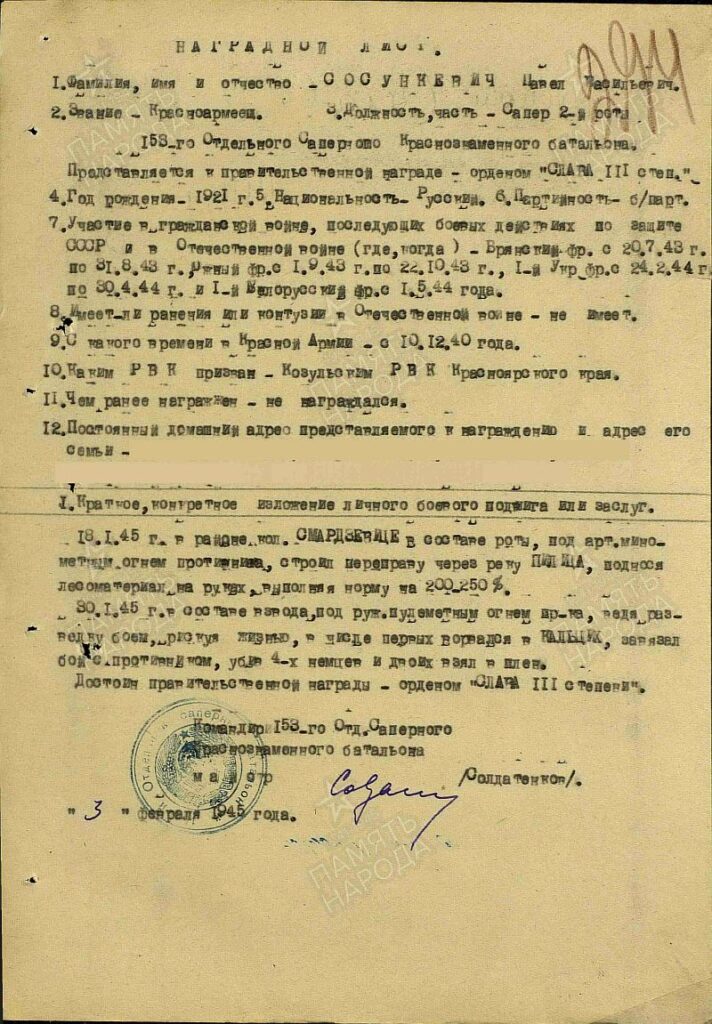 НАГРАДНОЙ ЛИСТ.
1.Фамилия, имя и отчество - СОСУНКЕВИЧ Павел Васильевич.
2.Звание - Красноармеец. 3.Должность,часть - Сапер 2-й роты
153-го Отдельного Саперного Краснознаменного батальона.
Представляется к правительственной награде - орденом "СЛАВА III степ."
4.Год рождения - 1921 г.5.Национальность- Русский. 6.Партийность- б/парт.
7.Участие в гражданской войне, последующих боевых действиях по защите
СССР и в Отечественной войне (где,когда ) - Брянский фр. с 20.7.43 г.
по 31.8.43 г.,Южный фр.с 1.9.43 г.по 22.10.43 г., I-й Укр фр.с 24.2.44 г.
по 30.4.44 г. и I-й Белорусский фр.с 1.5.44 года.
8.Имеет-ли ранения или контузии в Отечественной войне - не имеет.
9.С какого времени в Красной Армии - с 10.12.40 года.
10.Каким Р В К призван - Козульским Р В К Красноярского края.
11.Чем ранее награжен - не награждался.
12.Постоянный домашний адрес представляемого к награждению и адрес его
семьи -
I.Краткое,конкретное изложение личного боевого подвига или заслуг.
18.1.45 г. в районе кол. СМАРДЗЕВИЦЕ в составе роты, под арт.мино-
метным огнем противника, строил переправу через реку ПИЛИЦА, поднося
лесоматериал на руках, выполняя норму на 200-250%.
30.1.45 г.в составе взвода,под руж.пулеметным огнем пр-ка, ведя раз-
ведку боем, рискуя жизнью, в числе первых ворвался в КАЛЬЦИХ, завязал
бой с противником, убив 4-х немцев и двоих взял в плен.
Достоин правительственной награды - орденом "СЛАВА III степени".
Командир 153-го Отд.Саперного
Краснознаменного батальона
майор /Солдатенков/.
" 3 " февраля 1945 года.
ПАМЯТЬ
НАРОДА